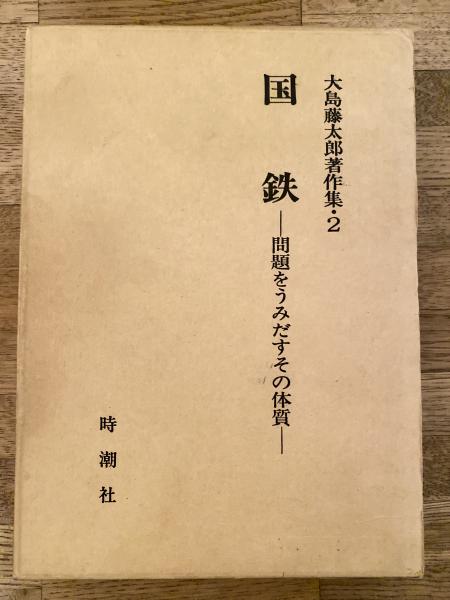 大島藤太郎著作集・2
国鉄
―問題をうみだすその体質―
時潮社